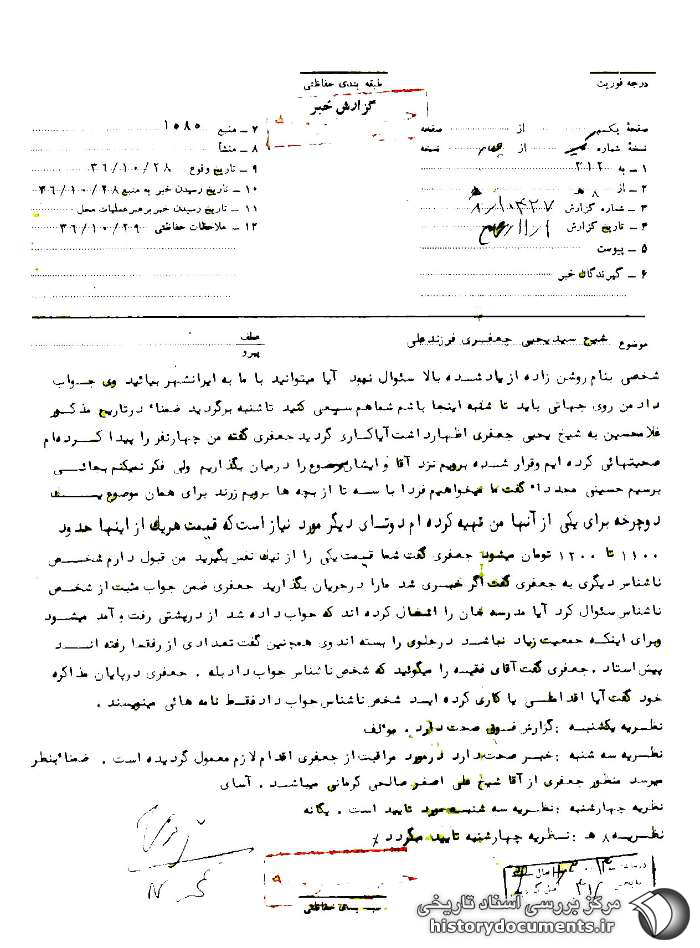 درجه فوریت
طبقه بندی حفاظتی
گزارش خبر
صفحهٔ یکم از صفحه
نسخهٔ شماره از چهار نسخه
۱ – به ۲۱۲
۲ – از ۸ هـ
۳ – شماره گزارش ۸/۱۰۴۲۷
۴ – تاریخ گزارش
۵ – پیوست
۶ – گیرندگان خبر
۷ – منبع ۱۰۸۰
۸ – منشأ
۹ – تاریخ وقوع ۳۶/۱۰/۲۸
۱۰ – تاریخ رسیدن خبر به منبع ۳۶/۱۰/۲۸
۱۱ – تاریخ رسیدن خبر برهبر عملیات محل
۱۲ – ملاحظات حفاظتی ۳۶/۱۰/۲۹
موضوع شیخ سید یحیی جعفری فرزند علی
عطف
پیرو
شخصی بنام روشن زاده از یادشده بالا سئوال نمود آیا میتوانید با ما به ایرانشهر بیائید وی جواب
داد من روی جهاتی باید تا شنبه اینجا باشم شما هم سعی کنید تا شنبه برگردید ضمنا" در تاریخ مذکور
غلامحسین به شیخ یحیی جعفری اظهار داشت آیا کاری گردید جعفری گفته من چهار نفر را پیدا کرده‌ام
صحبتهائی کرده ایم وقرار شده برویم نزد آقا و ایشان موضوع را درمیان بگذاریم ولی فکر نمیکنم بجائی
برسیم حسینی مجددا" گفت ما میخواهیم فردا با سه تا از بچه ها برویم زرند برای همان موضوع
دوچرخه برای یکی از آنها من تهیه کرده ام دوتای دیگر مورد نیاز است که قیمت هریک از اینها حدود
۱۱۰۰ تا ۱۲۰۰ تومان میشود جعفری گفت شما قیمت یکی را از نفر بگیرید من قبول دارم شخص
ناشناس دیگری به جعفری گفت اگر خبری شد مارا درجریان بگذارید جعفری ضمن جواب مثبت از شخص
ناشناس سئوال کرد آیا مدرسه خان را اشغال کرده اند که جواب داده شد از درپشتی رفت و آمد میشود
وبرای اینکه جمعیت زیاد نباشد درجلوی را بسته اند وی همچنین گفت تعدادی از رفقا رفته انـد
پیش استاد . جعفری گفت آقای فقیه را میگوئید که شخص ناشناس جواب داد بله . جعفری درپایان مذاکره
خود گفت آیا اقداماتی یا کاری کرده اید شخص ناشناس جواب داد فقط نامه هائی مینویسند .
نظریه یکشنبه : گزارش فوق صحت دارد . موٴلف
نظریه سه شنبه : خبر صحت دارد درمورد مراقبت از جعفری اقدام لازم معمول گردیده است . ضمنا" بنظر
میرسد منظور جعفری از آقا شیخ علی اصغر صالحی کرمانی میباشد . آسای
نظریه چهارشنبه : نظریه سه شنبه مورد تایید است . یگانه
نظریه ۸ هـ : نظریه چهارشنبه تایید میگردد
طبقه بندی حفاظتی
مرکز بررسی اسناد تاریخی
historydocuments.ir